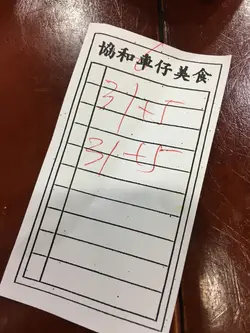 協和車仔美食
31+5
31+5